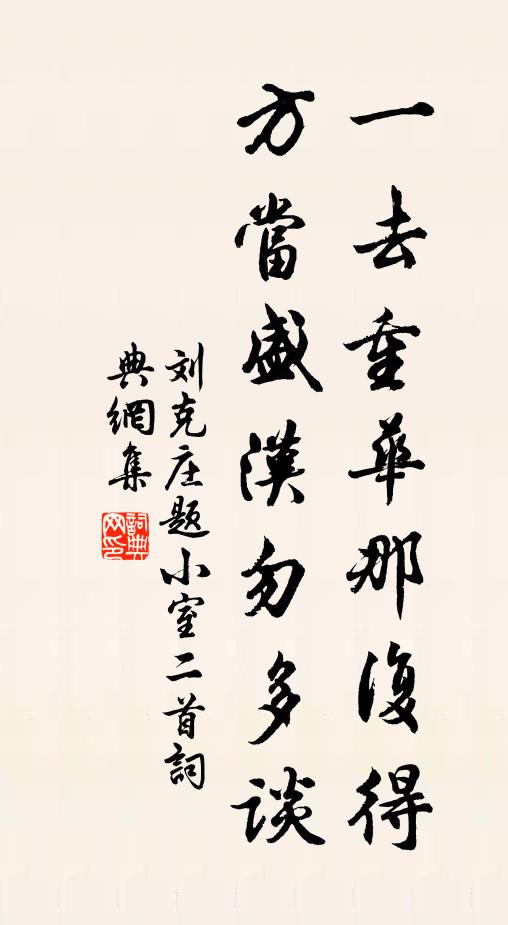 一去重華那復得
方當盛漢勿多談
刘克庄题小室二首詞
典網集
詞典
网印